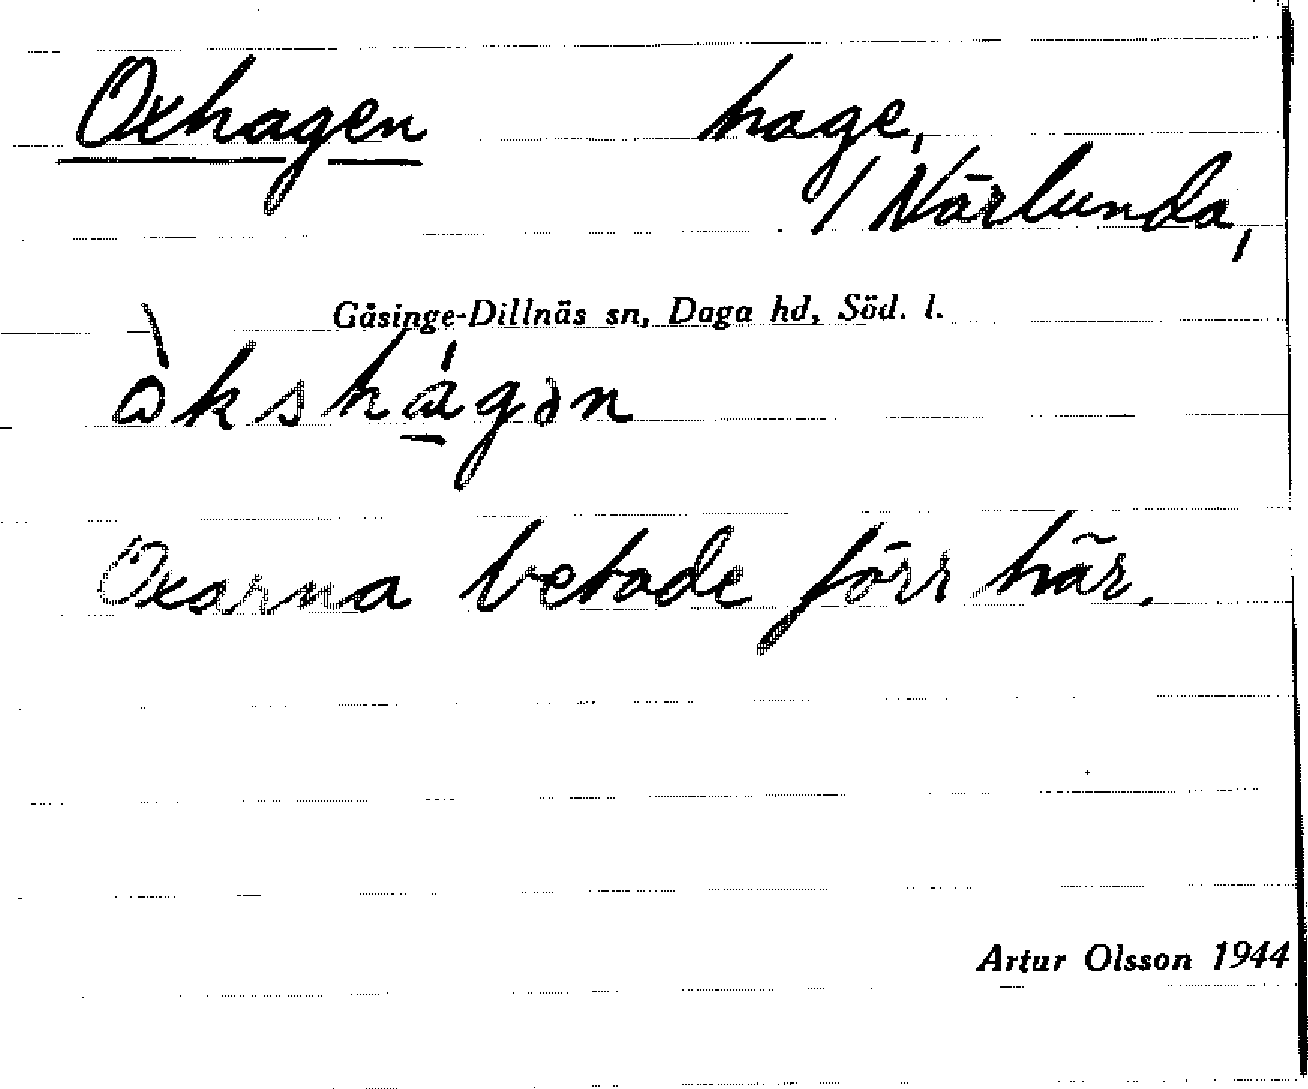 Oxhagen hage,
/ Närlunda,
Gåsinge-Dillnäs sn, Daga hd, Söd. l.
Oxarna betade förr här.
Artur Olsson 1944